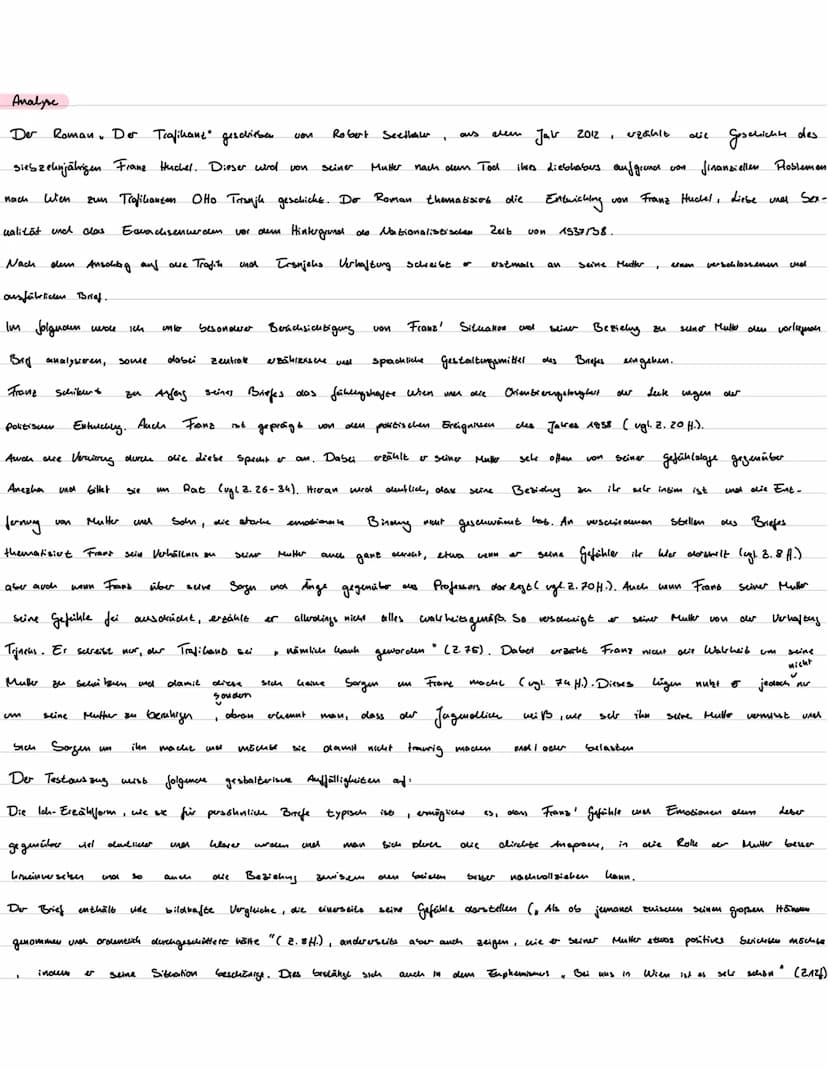 Analyse
Der Roman „Der Trafikant" geschrieben von Robert Seethaler, aus dem Jahr 2012, erzählt die Geschichte des
siebzehnjährigen Franz Huchel. Dieser wird von seiner Mutter nach dem Tod ihres Liebhabers aufgrund von finanziellen Problemen
nach Wien zum Trafikanten Otto Trsnjk geschickt. Der Roman thematisiert die Entwicklung von Franz Huchel, Liebe und Sex-
ualität und das Erwachsenwerden vor dem Hintergrund der Nationalistischen Zeit von 1937/38.
Nach dem Anschlag auf die Trafik und Trsnjeks Verhaftung schreibt er erstmals an seine Mutter, einen verschlossenen und
ausführlichen Brief.
Im folgenden werde ich unter besonderer Berücksichtigung von Franz' Situation und seiner Beziehung zu seiner Mutter den vorliegenen
Brief analysieren, sowie dabei zentrale erzählerische und sprachliche Gestaltungsmittel des Briefes eingehen.
Franz schildert zu Anfang seines Briefes das Wien und die Orientierungslosigkeit der Leute wegen der
politischen Entwicklung. Auch Franz ist geprägt von den politischen Ereignissen des Jahres 1938 (vgl. Z. 20 ff.).
Auch die Verwirrung durch die Liebe spricht er an. Dabei erzählt er seiner Mutter sehr offen von seiner Gefühlslage gegenüber
Anezka und bittet sie um Rat (vgl Z. 26-34). Hieran wird deutlich, dass seine Beziehung zu ihr sehr intim ist und die Ent-
fernung von Mutter und Sohn, die starke emotionale Bindung nicht geschwächt hat. An verschiedenen Stellen des Briefes
thematisiert Franz sein Verhältnis zu seiner Mutter auch ganz direkt, etwa wenn er seine Gefühle ihr klar darstellt (vgl. Z. 8 ff.)
aber auch wenn Franz über seine Sorgen und Ängste gegenüber des Professors dar legt (vgl. Z. 70 ff.). Auch wenn Franz seiner Mutter
seine Gefühle frei ausdrückt, erzählt er allerdings nicht alles wahrheitsgemäß. So verschweigt er seiner Mutter von der Verhaftung
Er schreibt nur, der Trafikant sei „nämlich krank geworden" (Z. 75). Dabei erzählt Franz nicht die Wahrheit um seine
Mutter zu schützen und damit diese sich keine Sorgen um Franz macht (vgl. 74 ff.). Dieses lügen nutzt er jedoch nicht nur
um seine Mutter zu beruhigen, sondern daran erkennt man, dass der Jugendliche weiß, wie sehr ihn seine Mutter vermisst und
sich Sorgen um ihn macht und möchte sie damit nicht traurig machen und/oder belasten
Der Textauszug weist folgende gestalterische Auffälligkeiten auf:
Die Ich-Erzählform, wie sie für persöhnliche Briefe typisch ist, ermöglicht es, dass Franz' Gefühle und Emotionen dem Leser
gegenüber viel deutlicher und klarer werden und man sich durch die direkte Ansprache, in die Rolle der Mutter besser
hineinversetzen und so auch die Beziehung zwischen den beiden besser nachvollziehen kann.
Der Brief enthält viele bildhafte Vergleiche, die einerseits seine Gefühle darstellen („Als ob jemand zwischen seinen großen Händen
genommen und ordentlich durchgeschüttelt hätte" (Z. 8 ff.), anderseits aber auch zeigen, wie er seiner Mutter etwas positives berichten möchte
, indem er seine Situation beschönigt. Dies bestätigt sich auch in dem Euphemismus „Bei uns in Wien ist es sehr schön" (Z.12f)